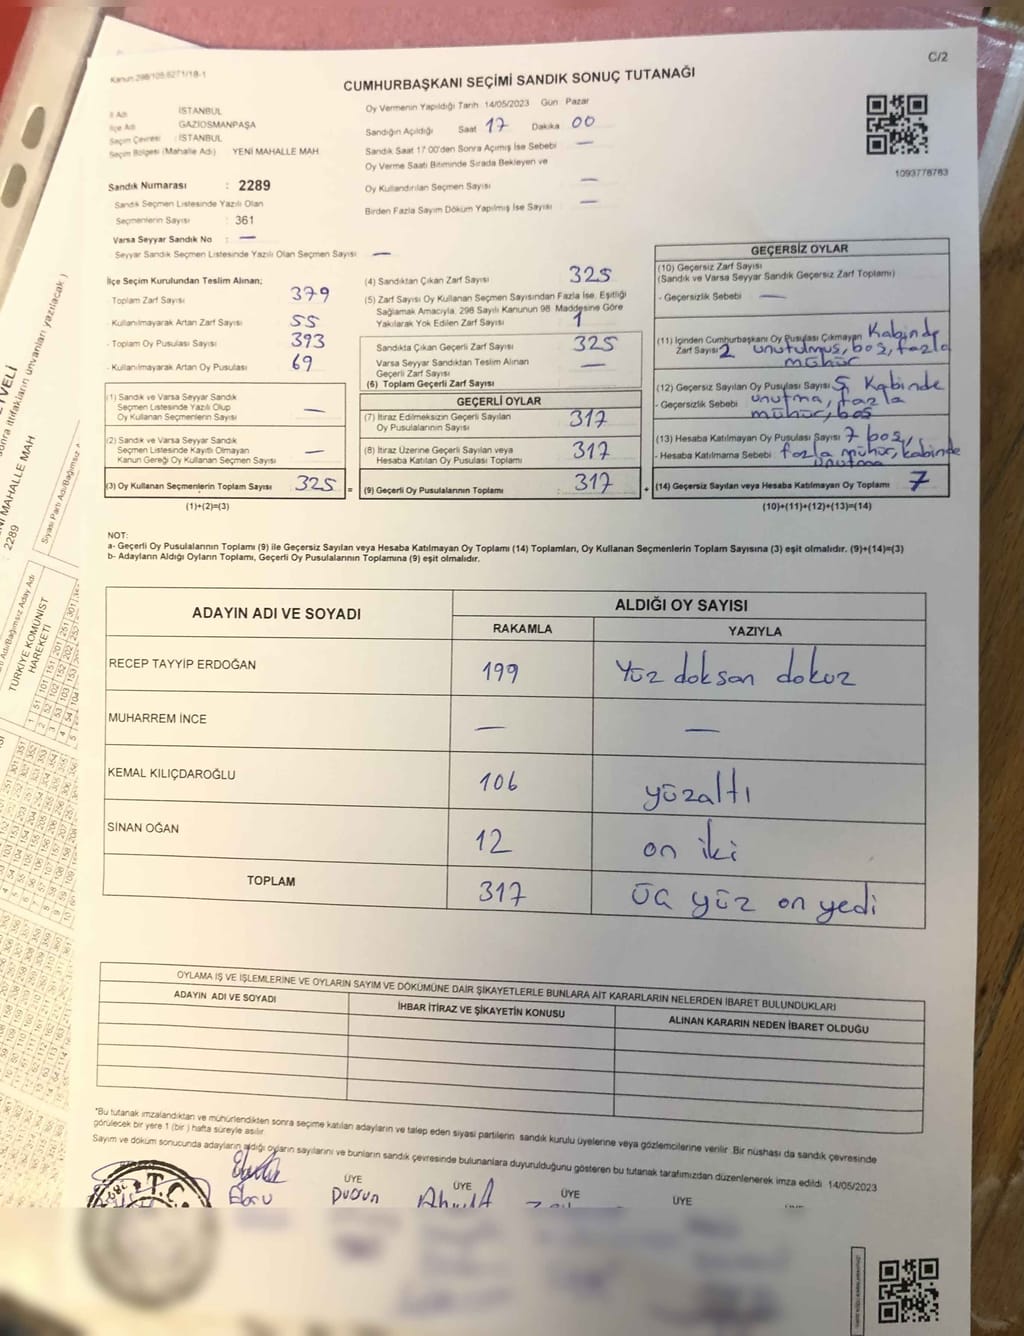 Kanun:298/105;6271/18-1
C/2
CUMHURBAŞKANI SEÇİMİ SANDIK SONUÇ TUTANAĞI
İl Adı : İSTANBUL
İlçe Adı : GAZİOSMANPAŞA
Seçim Çevresi : İSTANBUL
Seçim Bölgesi (Mahalle Adı) YENİ MAHALLE MAH
Sandık Numarası : 2289
Sandık Seçmen Listesinde Yazılı Olan
Seçmenlerin Sayısı : 361
Varsa Seyyar Sandık No : —
Seyyar Sandık Seçmen Listesinde Yazılı Olan Seçmen Sayısı : —
Oy Vermenin Yapıldığı Tarih 14/05/2023 Gün Pazar
Sandığın Açıldığı Saat 17 Dakika 00
Sandık Saat 17:00'den Sonra Açımış İse Sebebi —
Oy Verme Saati Bitiminde Sırada Bekleyen ve
Oy Kullandırılan Seçmen Sayısı —
Birden Fazla Sayım Döküm Yapılmış İse Sayısı —
1093778783
İlçe Seçim Kurulundan Teslim Alınan;
Toplam Zarf Sayısı 379
- Kullanılmayarak Artan Zarf Sayısı 55
- Toplam Oy Pusulası Sayısı 393
- Kullanılmayarak Artan Oy Pusulası 69
(1) Sandık ve Varsa Seyyar Sandık
Seçmen Listesinde Yazılı Olup
Oy Kullanan Seçmenlerin Sayısı —
(2) Sandık ve Varsa Seyyar Sandık
Seçmen Listesinde Kayıtlı Olmayan
Kanun Gereği Oy Kullanan Seçmen Sayısı —
(3) Oy Kullanan Seçmenlerin Toplam Sayısı 325 =
(1)+(2)=(3)
(4) Sandıktan Çıkan Zarf Sayısı 325
(5) Zarf Sayısı Oy Kullanan Seçmen Sayısından Fazla İse, Eşitliği
Sağlamak Amacıyla, 298 Sayılı Kanunun 98. Maddesine Göre
Yakılarak Yok Edilen Zarf Sayısı 1
Sandıkta Çıkan Geçerli Zarf Sayısı 325
Varsa Seyyar Sandıktan Teslim Alınan
Geçerli Zarf Sayısı —
(6) Toplam Geçerli Zarf Sayısı
GEÇERLİ OYLAR
(7) İtiraz Edilmeksizin Geçerli Sayılan
Oy Pusulalarının Sayısı 317
(8) İtiraz Üzerine Geçerli Sayılan veya
Hesaba Katılan Oy Pusulası Toplamı 317
(9) Geçerli Oy Pusulalarının Toplamı : 317 +
GEÇERSİZ OYLAR
(10) Geçersiz Zarf Sayısı
(Sandık ve Varsa Seyyar Sandık Geçersiz Zarf Toplamı)
- Geçersizlik Sebebi —
(11) İçinden Cumhurbaşkanı Oy Pusulası Çıkmayan Kabinde
Zarf Sayısı 2 unutulmuş, boş, fazla
mühür
(12) Geçersiz Sayılan Oy Pusulası Sayısı 5 Kabinde
- Geçersizlik Sebebi unutma, fazla
mühür, boş
(13) Hesaba Katılmayan Oy Pusulası Sayısı 7 boş,
- Hesaba Katılmama Sebebi fazla mühür, kabinde
unutma
(14) Geçersiz Sayılan veya Hesaba Katılmayan Oy Toplamı 7
(10)+(11)+(12)+(13)=(14)
NOT:
a- Geçerli Oy Pusulalarının Toplamı (9) ile Geçersiz Sayılan veya Hesaba Katılmayan Oy Toplamı (14) Toplamları, Oy Kullanan Seçmenlerin Toplam Sayısına (3) eşit olmalıdır. (9)+(14)=(3)
b- Adayların Aldığı Oyların Toplamı, Geçerli Oy Pusulalarının Toplamına (9) eşit olmalıdır.
ADAYIN ADI VE SOYADI
ALDIĞI OY SAYISI
RAKAMLA YAZIYLA
RECEP TAYYİP ERDOĞAN 199 Yüz doksan dokuz
MUHARREM İNCE — —
KEMAL KILIÇDAROĞLU 106 yüzaltı
SİNAN OĞAN 12 on iki
TOPLAM 317 üç yüz on yedi
OYLAMA İŞ VE İŞLEMLERİNE VE OYLARIN SAYIM VE DÖKÜMÜNE DAİR ŞİKAYETLERLE BUNLARA AİT KARARLARIN NELERDEN İBARET BULUNDUKLARI
ADAYIN ADI VE SOYADI İHBAR İTİRAZ VE ŞİKAYETİN KONUSU ALINAN KARARIN NEDEN İBARET OLDUĞU
"Bu tutanak imzalandıktan ve mühürlendikten sonra seçime katılan adayların ve talep eden siyasi partilerin sandık kurulu üyelerine veya gözlemcilerine verilir. Bir nüshası da sandık çevresinde
görülecek bir yere 1 (bir) hafta süreyle asılır.
Sayım ve döküm sonucunda adayların aldığı oyların sayılarını ve bunların sandık çevresinde bulunanlara duyurulduğunu gösteren bu tutanak tarafımızdan düzenlenerek imza edildi 14/05/2023
ÜYE ÜYE ÜYE ÜYE
Ebru Dursun Ahmet
T.C.
YENİ MAHALLE MAH
2289
TÜRKİYE KOMÜNİST
HAREKETİ